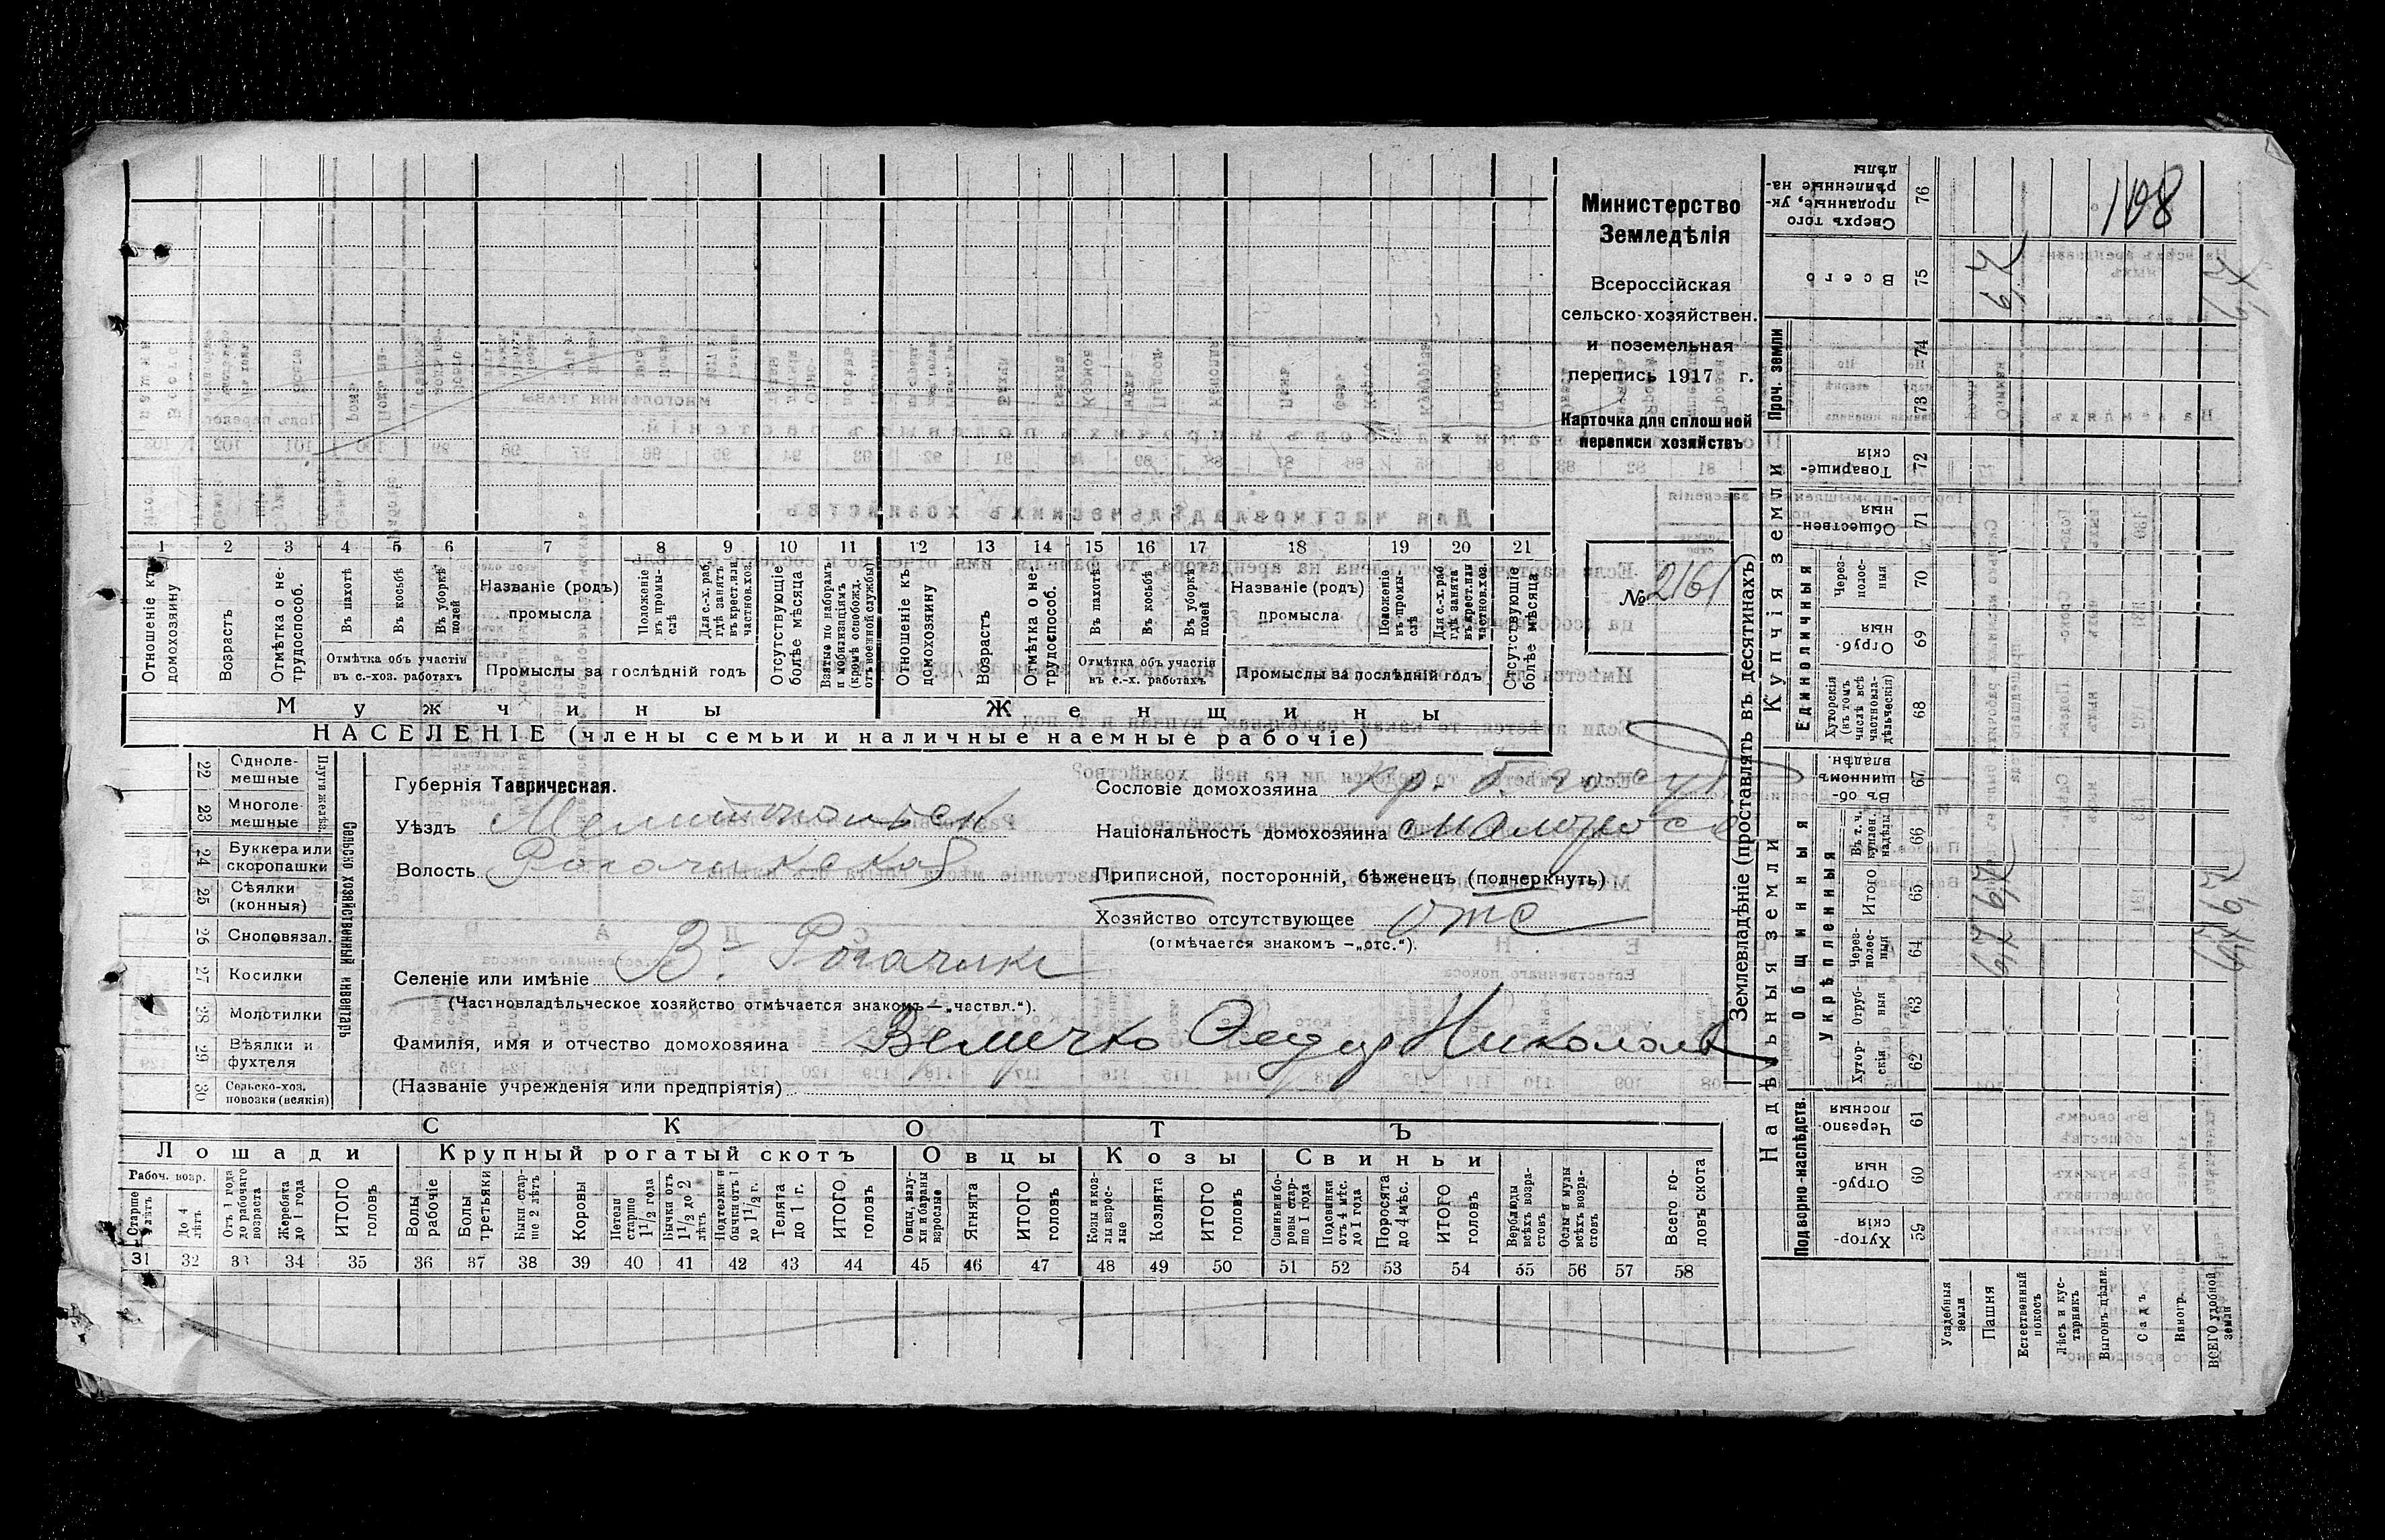 Министерство
Земледѣлія
Всероссійская
сельско-хозяйствен.
и поземельная
перепись 1917 г.
Карточка для сплошной
переписи хозяйствъ
№ 2161
1 2 3 4 5 6 7 8 9 10 11 12 13 14 15 16 17 18 19 20 21
Отношеніе къ домохозяину
Возрастъ
Отмѣтка о не-трудоспособ.
Въ пахотѣ
Въ косьбѣ
Въ уборкѣ полей
Отмѣтка объ участіи
въ с.-хоз. работахъ
Названіе (родъ)
промысла
Положеніе въ промы-слѣ
Для с.-х. раб. гдѣ занятъ въ крест. или частнов. хоз.
Промыслы за послѣдній годъ
Отсутствующіе болѣе мѣсяца
Взятые по наборамъ и мобилизаціямъ (кромѣ освобожд. отъ военной службы)
Отношеніе къ домохозяину
Возрастъ
Отмѣтка о не-трудоспособ.
Въ пахотѣ
Въ косьбѣ
Въ уборкѣ полей
Отмѣтка объ участіи
въ с.-х. работахъ
Названіе (родъ)
промысла
Положеніе въ промы-слѣ
Для с.-х. раб. гдѣ занята въ крест. или частнов. хоз.
Промыслы за послѣдній годъ
Отсутствующіе болѣе мѣсяца
Мужчины
Женщины
НАСЕЛЕНІЕ (члены семьи и наличные наемные рабочіе)
Сельско хозяйственный инвентарь
Плуги желѣз.
22 Одноле-мешные
23 Многоле-мешные
24 Буккера или скоропашки
25 Сѣялки (конныя)
26 Сноповязал.
27 Косилки
28 Молотилки
29 Вѣялки и фухтеля
30 Сельско-хоз. повозки (всякія)
Губернія Таврическая.
Уѣздъ Мелитопольск
Волость Рогачикская
Сословіе домохозяина кр.
Національность домохозяина малорос
Приписной, посторонній, бѣженецъ (подчеркнуть)
Хозяйство отсутствующее отс
(отмѣчается знакомъ —„отс.“).
Селеніе или имѣніе В. Рогачик
(Частновладѣльческое хозяйство отмѣчается знакомъ—„частвл.“).
Фамилія, имя и отчество домохозяина Величко Федор Николаев
(Названіе учрежденія или предпріятія)
СКОТЪ
Лошади
Крупный рогатый скотъ
Овцы
Козы
Свиньи
Рабоч. возр.
Старше 4 лѣтъ
До 4 лѣтъ
Отъ 1 года до рабочаго возраста
Жеребята до 1 года
ИТОГО головъ
Волы рабочіе
Волы третьяки
Быки стар-ше 2 лѣтъ
Коровы
Нетели старше 1½ года
Бычки отъ 1½ до 2 лѣтъ
Подтелки и бычки отъ 1 до 1½ г.
Телята до 1 г.
ИТОГО головъ
Овцы, валу-хи и бараны взрослые
Ягнята
ИТОГО головъ
Козы и коз-лы взрос-лые
Козлята
ИТОГО головъ
Свиньи бо-ровы стар-ше 1 года
Подсвинки отъ 4 мѣс. до 1 года
Поросята до 4 мѣс.
ИТОГО головъ
Верблюды всѣхъ возра-стовъ
Ослы и мулы всѣхъ возра-стовъ
Всего го-ловъ скота
31 32 33 34 35 36 37 38 39 40 41 42 43 44 45 46 47 48 49 50 51 52 53 54 55 56 57 58
Землевладѣніе (проставлять въ десятинахъ)
Надѣльныя земли
Купчія земли
Проч. земли
Подворно-наслѣдств.
Общинныя
Укрѣпленныя
Единоличныя
Сверхъ того проданные, ук-рѣпленные на-дѣлы 76
Всего 75
74
73
Товарище-скія 72
Обществен-ныя 71
Через-полос-ныя 70
Отруб-ныя 69
Хуторскія (въ томъ числѣ всѣ частновла-дѣльческія) 68
Въ об-щинномъ владѣн. 67
Въ т. ч. куплен. надѣлы 66
Итого 65
Через-полос-ныя 64
Отруб-ныя 63
Хутор-скія 62
Черезпо-лосныя 61
Отруб-ныя 60
Хутор-скія 59
Усадебныя земли
Пашня
Естественный покосъ
Лѣсъ и кус-тарникъ
Выгонъ цѣлин.
Садъ
Виногр.
ВСЕГО удобной земли
108